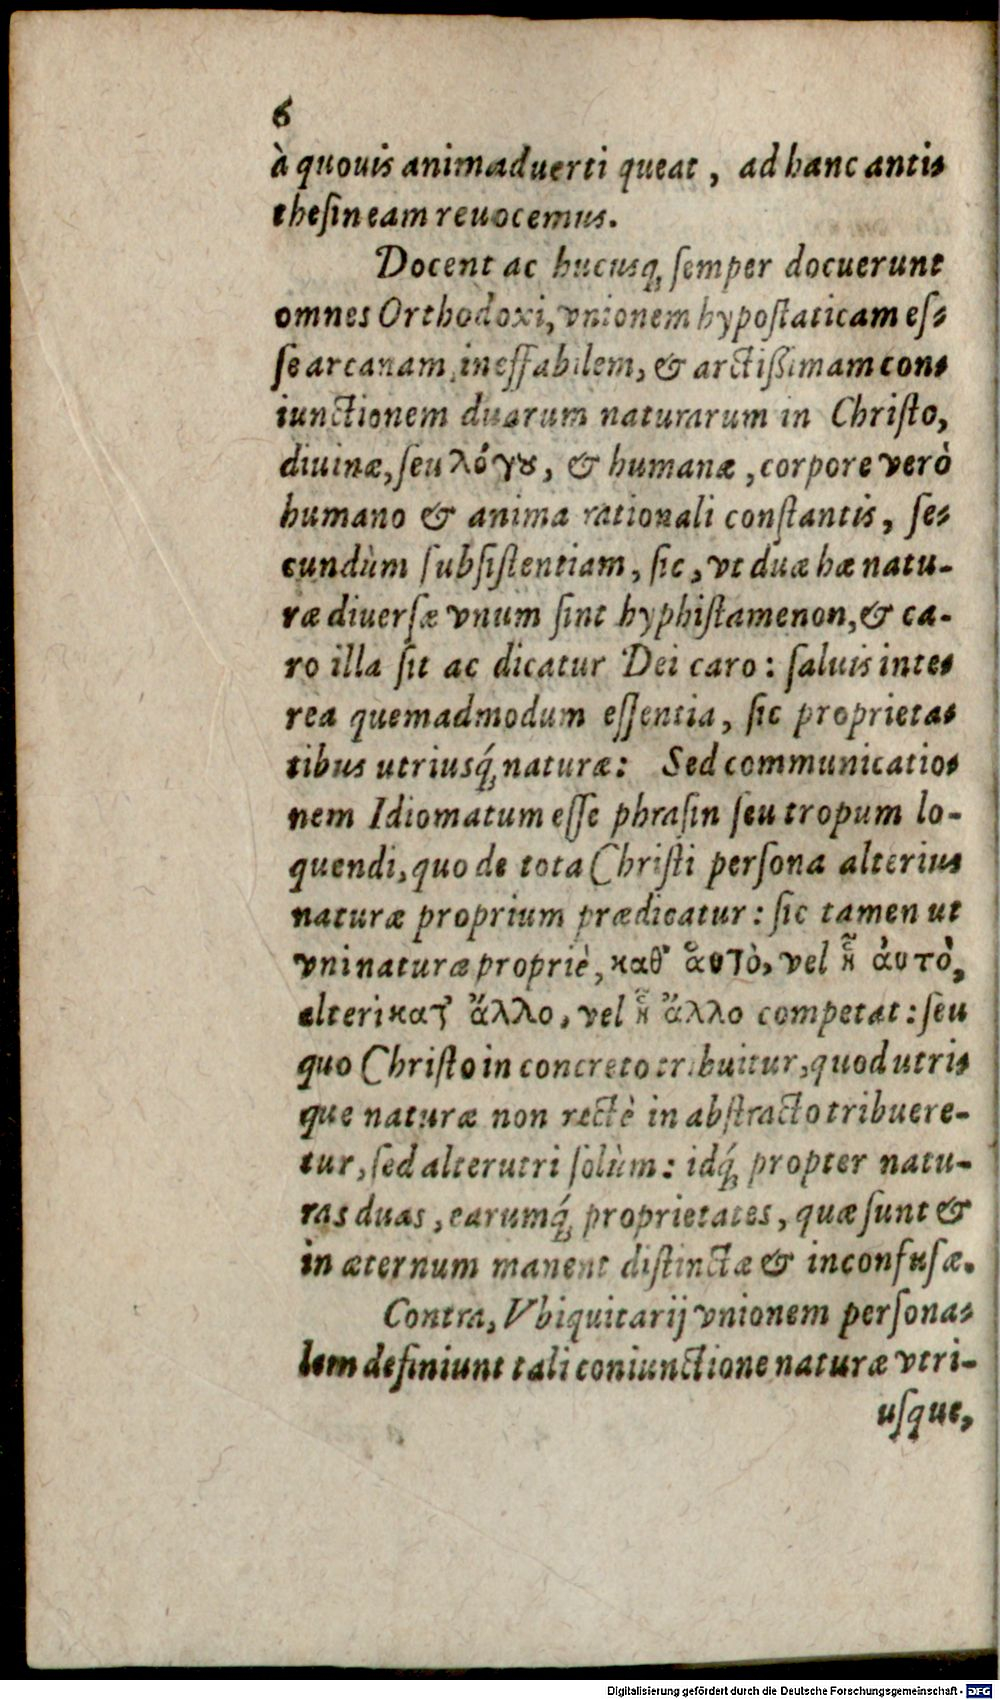 6
à quouis animaduerti queat, ad hanc anti-
thesin eam reuocemus.
Docent ac hucusq; semper docuerunt
omnes Orthodoxi, vnionem hypostaticam es-
se arcanam, ineffabilem, & arctißimam con-
iunctionem duarum naturarum in Christo,
diuinæ, seu λόγȣ, & humanæ, corpore verò
humano & anima rationali constantis, se-
cundùm subsistentiam, sic, vt duæ hæ natu-
ræ diuersæ vnum sint hyphistamenon, & ca-
ro illa sit ac dicatur Dei caro: saluis inte-
rea quemadmodum essentia, sic proprieta-
tibus utriusq́; naturæ: Sed communicatio-
nem Idiomatum esse phrasin seu tropum lo-
quendi, quo de tota Christi persona alterius
naturæ proprium prædicatur: sic tamen ut
vni naturæ propriè, καθ' ἁυτὸ, vel ᾗ ἀυτὸ,
alteri κατ' ἄλλο, vel ᾗ ἄλλο competat: seu
quo Christo in concreto tribuitur, quod utri-
que naturæ non rectè in abstracto tribuere-
tur, sed alterutri solùm: idq́; propter natu-
ras duas, earumq́; proprietates, quæ sunt &
in æternum manent distinctæ & inconfusæ.
Contra, Vbiquitarij vnionem persona-
lem definiunt tali coniunctione naturæ vtri-
usque,
Digitalisierung gefördert durch die Deutsche Forschungsgemeinschaft - DFG